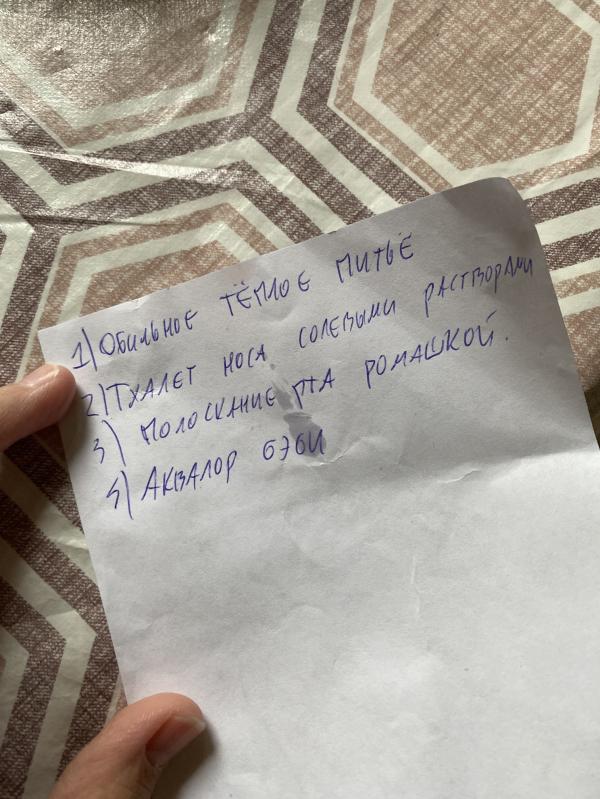 1) Обильное тёплое питьё
2) Туалет носа солевыми растворами
3) Полоскание рта ромашкой.
4) Аквалор бэби